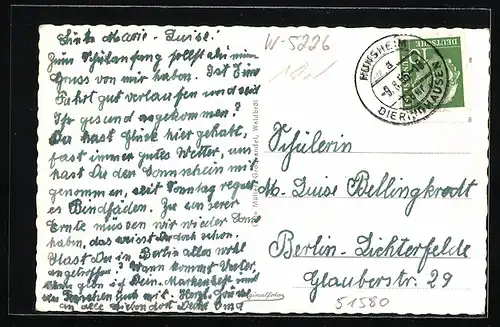 Liebe Marie-Luise!
Zum Schulanfang sollst du einen
Gruss von mir haben. Ist Eure
Fahrt gut verlaufen und seid
Ihr gesund angekommen?
Du hast Glück hier gehabt,
fast immer gutes Wetter, uns
hast Du den Sonnenschein mit
genommen, seit Sonntag regnet
es Bindfäden. Zu unserer
Ernte müssen wir wieder Sonne
haben, das weisst Du doch schon.
Hast Du in Berlin alles wohl
angetroffen? Wann kommt Vater,
dann geb ich Dein Markenheft und
mit. Herzl. Grüsse
an alle Lieben dort Deine Oma
W-5226
DEUTSCHE
HOMSHEIM
DIERINGHAUSEN
Schülerin
M. Luise Bellingkrodt
Berlin-Lichterfelde
Glauberstr. 29
51580
Originalfoto